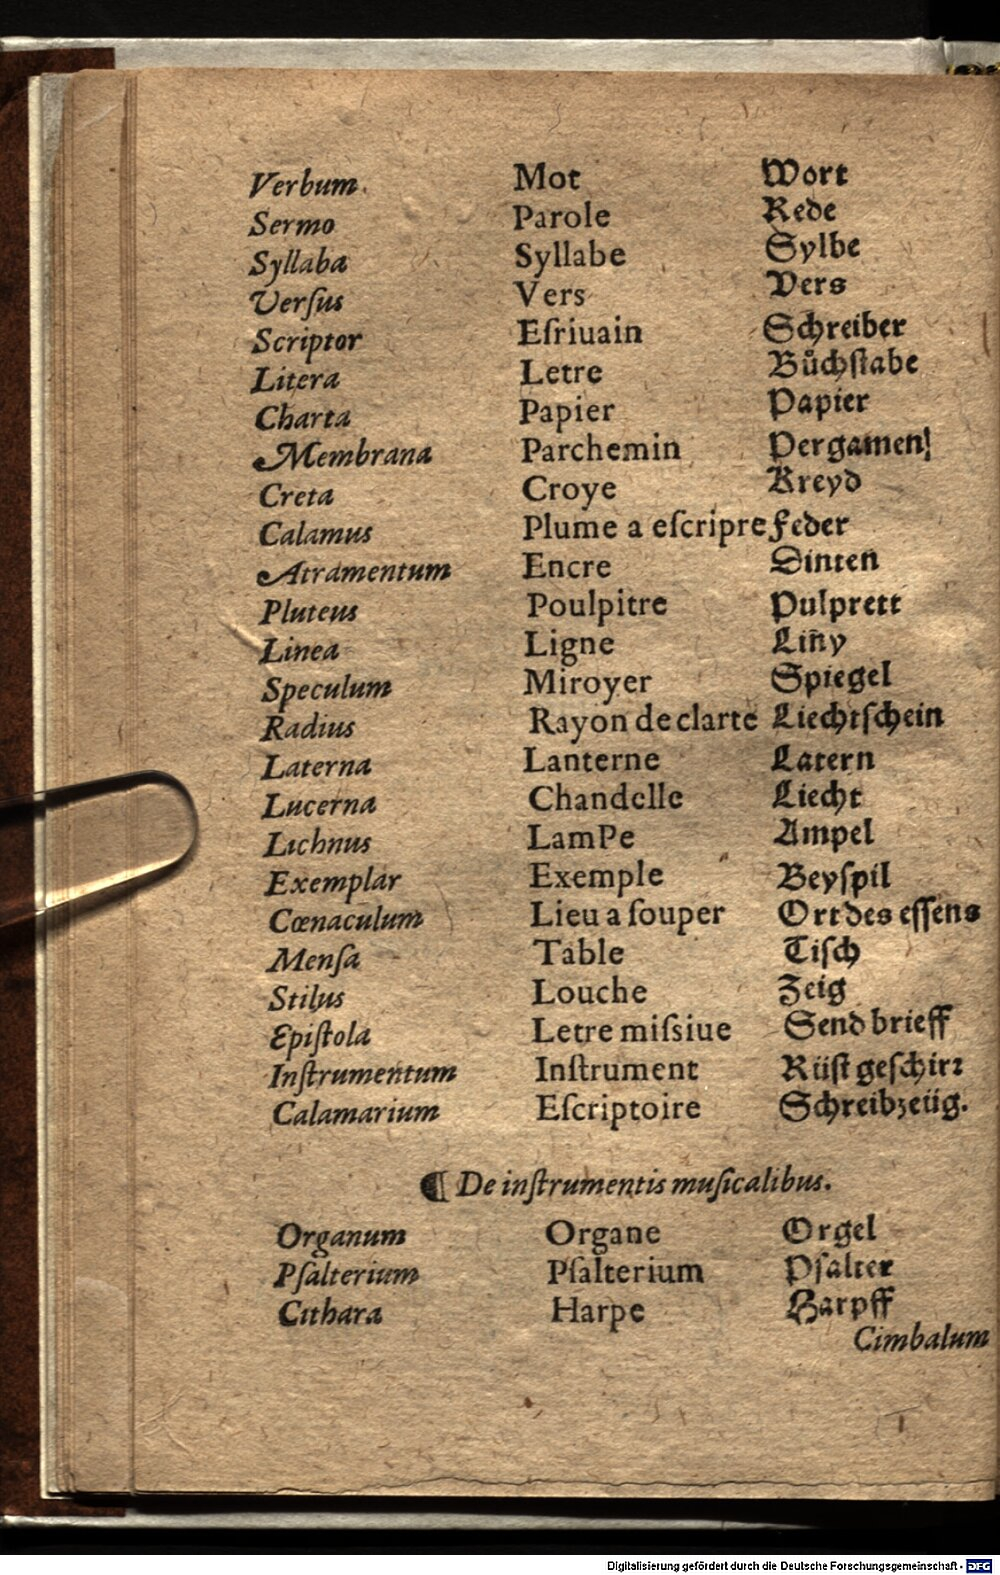 Verbum. Mot Wort
Sermo Parole Rede
Syllaba Syllabe Sylbe
Verſus Vers Vers
Scriptor Eſriuain Schreiber
Litera Letre Bůchſtabe
Charta Papier Papier
Membrana Parchemin Pergamen!
Creta Croye Kreyd
Calamus Plume a eſcripre Feder
Atramentum Encre Dinten
Pluteus Poulpitre Pulprett
Linea Ligne Liñy
Speculum Miroyer Spiegel
Radius Rayon de clarte Liechtſchein
Laterna Lanterne Latern
Lucerna Chandelle Liecht
Lichnus LamPe Ampel
Exemplar Exemple Beyſpil
Cœnaculum Lieu a ſouper Ort des eſſens
Menſa Table Tiſch
Stilus Louche Zeig
Epiſtola Letre miſsiue Send brieff
Inſtrumentum Inſtrument Rüſt geſchirꝛ
Calamarium Eſcriptoire Schreibzeüg.
¶ De inſtrumentis muſicalibus.
Organum Organe Orgel
Pſalterium Pſalterium Pſalter
Cithara Harpe Harpff
Cimbalum
Digitalisierung gefördert durch die Deutsche Forschungsgemeinschaft - DFG